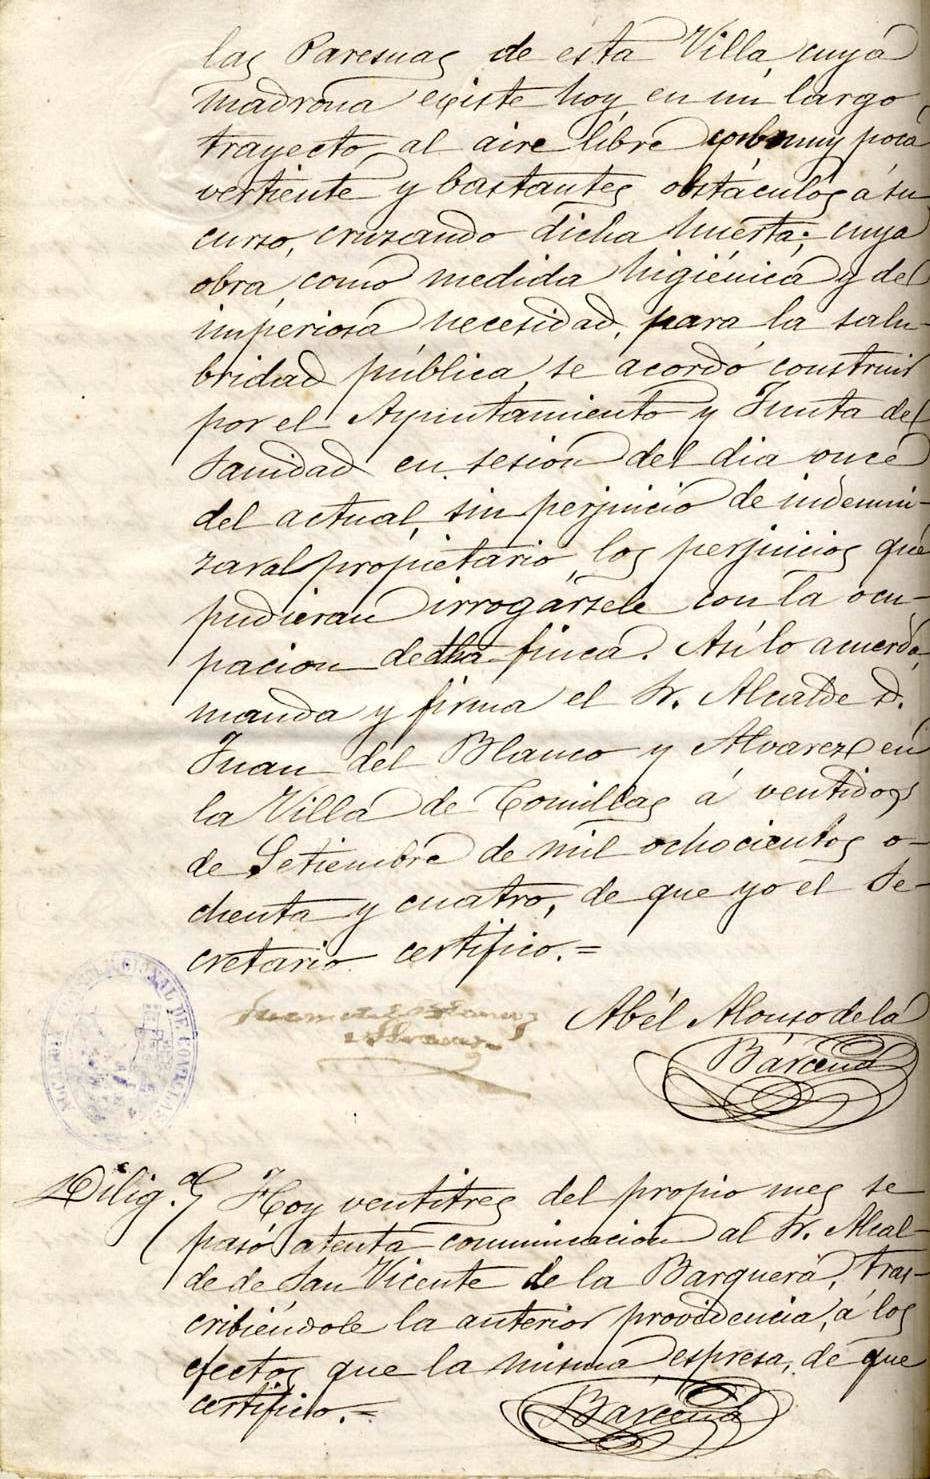 las Paresuas de esta Villa cuya
madrona existe hoy en un largo
trayecto al aire libre con muy poca
vertiente y bastantes obstáculos á su
curso, cruzando dicha huerta; cuya
obra, como medida higiénica y de
imperiosa necesidad, para la salu-
bridad pública, se acordó construir
por el Ayuntamiento y Junta de
Sanidad en sesion del dia once
del actual, sin perjuicio de indemni-
zar al propietario, los perjuicios que
pudieran irrogársele con la ocu-
pacion de dha finca. Asi lo acuerda,
manda y firma el Sr. Alcalde D.
Juan del Blanco y Alvarez en
la Villa de Comillas á ventidos
de Setiembre de mil ochocientos o-
chenta y cuatro, de que yo el Se-
cretario certifico.=
Juan del Blanco
Alvarez
Abél Alonso de la
Bárcena
CONSTITUCIONAL DE COMILLAS
Dilig.ª Hoy ventitres del propio mes se
pasó atenta comunicacion al Sr. Alcal-
de de San Vicente de la Barquera, tras-
cribiéndole la anterior providencia, á los
efectos que la misma espresa, de que
certifico.=
Bárcena